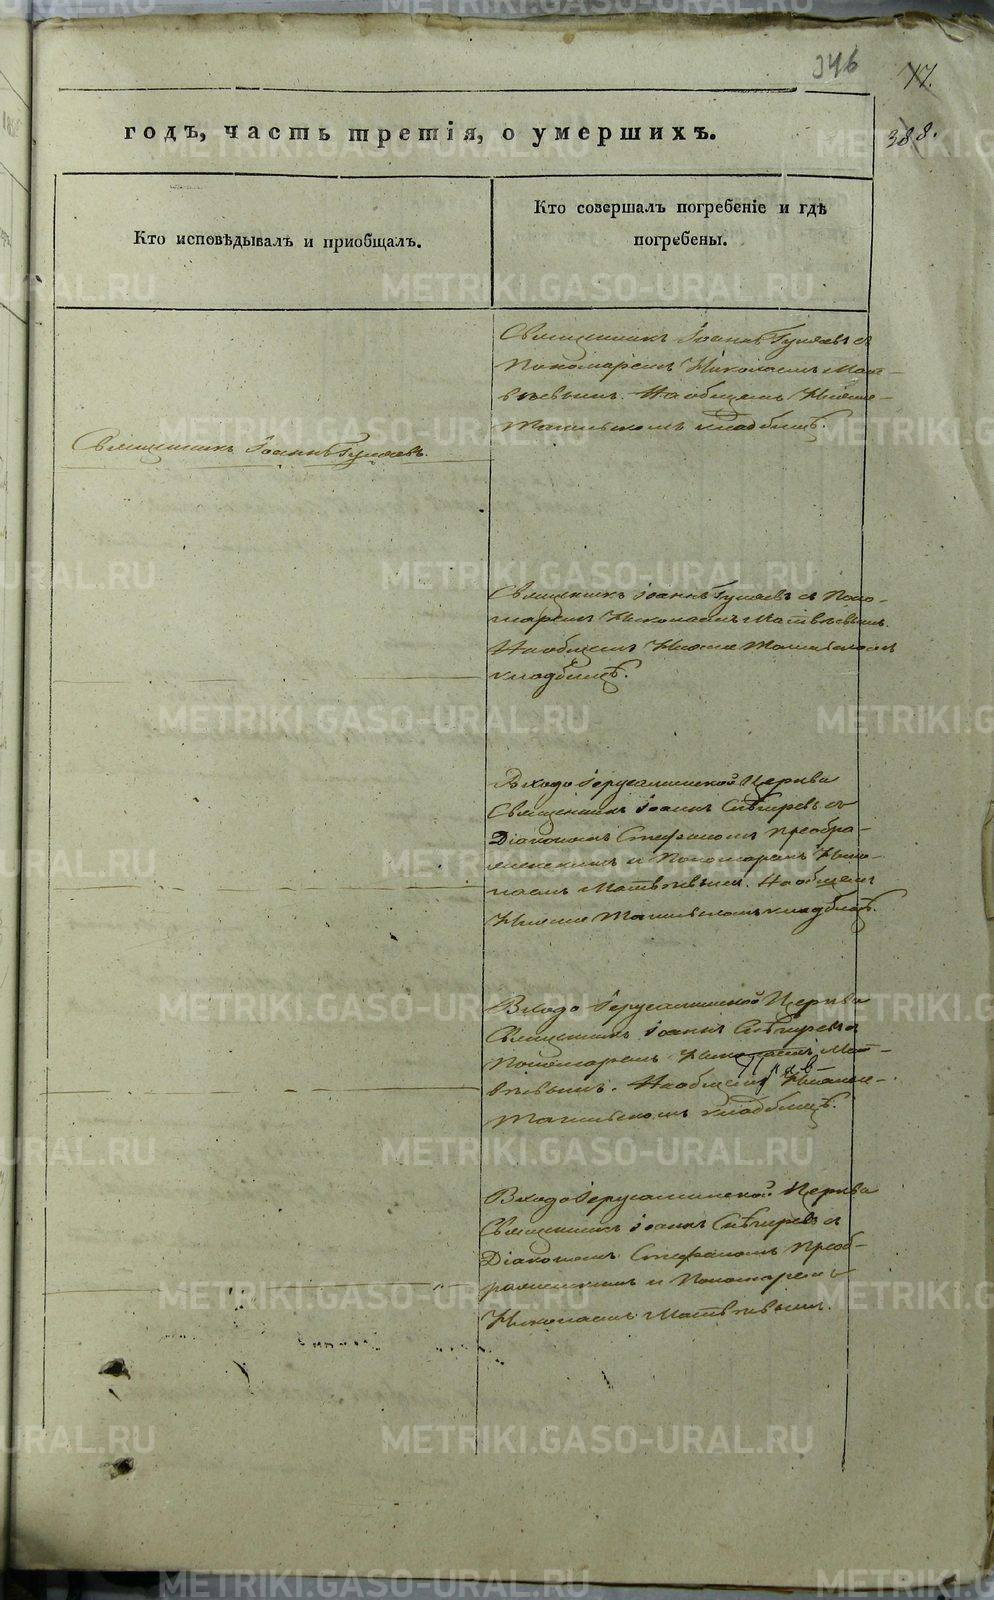 346
77.
388.
годъ, часть третія, о умершихъ.
Кто исповѣдывалъ и пріобщалъ.
Кто совершалъ погребеніе и гдѣ
погребены.
Священникъ Іоаннъ Гуляевъ съ
Пономаремъ Николаемъ Мат-
вѣевымъ. На общемъ Нижне-
Тагильскомъ кладбищѣ.
Священникъ Іоаннъ Гуляевъ.
Священникъ Іоаннъ Гуляевъ съ Поно-
маремъ Николаемъ Матвѣевымъ.
На общемъ Нижне Тагильскомъ
кладбищѣ.
Входо Іерусалимской Церкви
Священникъ Іоаннъ Снѣгиревъ съ
Діакономъ Стефаномъ Преобра-
женскимъ и Пономаремъ Нико-
лаемъ Матвѣевымъ. На общемъ
Нижне Тагильскомъ кладбищѣ.
Входо Іерусалимской Церкви
Священникъ Іоаннъ Снѣгиревъ съ
Пономаремъ Николаемъ Мат-
вѣевымъ. На общемъ Нижне-
Тагильскомъ кладбищѣ.
Входо Іерусалимской Церкви
Священникъ Іоаннъ Снѣгиревъ съ
Діакономъ Стефаномъ Преоб-
раженскимъ и Пономаремъ
Николаемъ Матвѣевымъ.
METRIKI.GASO-URAL.RU